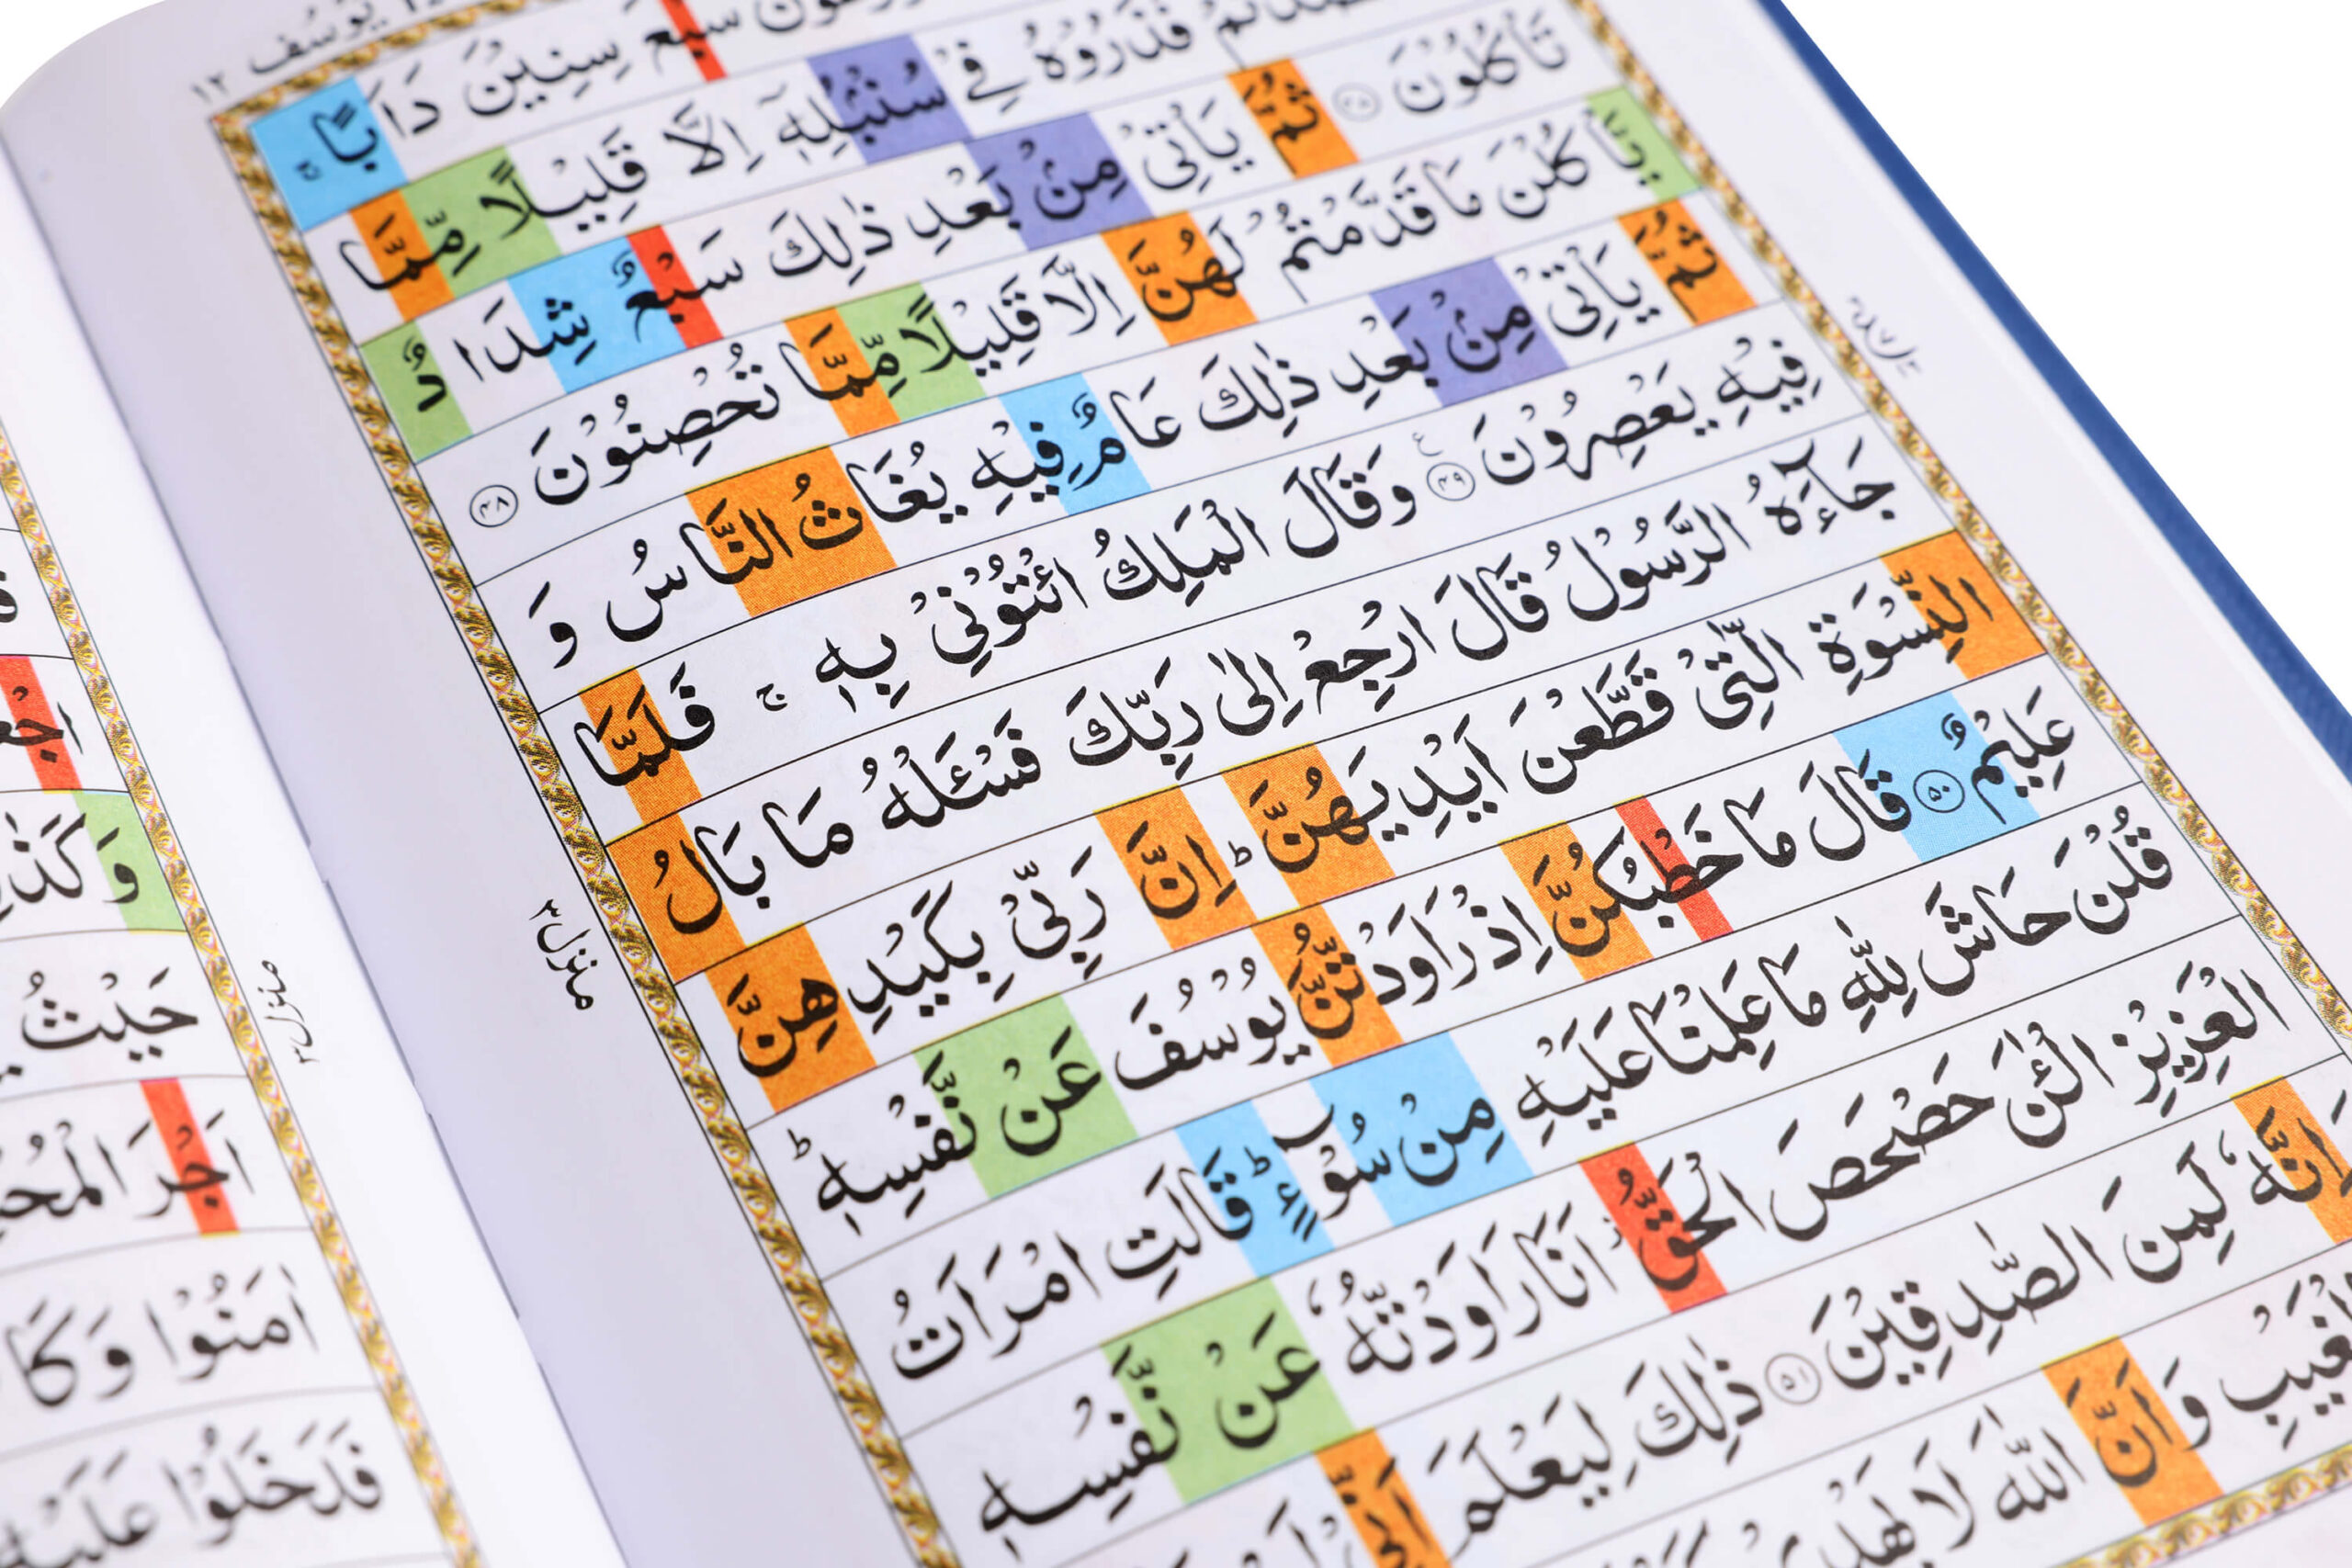 يوسف ١٢
سَبْعَ سِنِيْنَ دَاَبًا ۚ
فَذَرُوْهُ فِيْ سُنْۢبُلِهٖۤ اِلَّا قَلِيْلًا مِّمَّا
تَاْكُلُوْنَ ۝۴۷ ثُمَّ يَاْتِيْ مِنْۢ بَعْدِ ذٰلِكَ سَبْعٌ شِدَادٌ
يَّاْكُلْنَ مَا قَدَّمْتُمْ لَهُنَّ اِلَّا قَلِيْلًا مِّمَّا تُحْصِنُوْنَ ۝۴۸
ثُمَّ يَاْتِيْ مِنْۢ بَعْدِ ذٰلِكَ عَامٌ فِيْهِ يُغَاثُ النَّاسُ وَ
فِيْهِ يَعْصِرُوْنَ ۝۴۹ وَقَالَ الْمَلِكُ ائْتُوْنِيْ بِهٖ ۚ فَلَمَّا
جَآءَهُ الرَّسُوْلُ قَالَ ارْجِعْ اِلٰى رَبِّكَ فَسْـَٔلْهُ مَا بَالُ
النِّسْوَةِ الّٰتِيْ قَطَّعْنَ اَيْدِيَهُنَّ ؕ اِنَّ رَبِّيْ بِكَيْدِهِنَّ
عَلِيْمٌ ۝۵۰ قَالَ مَا خَطْبُكُنَّ اِذْ رَاوَدْتُّنَّ يُوْسُفَ عَنْ نَّفْسِهٖ ؕ
قُلْنَ حَاشَ لِلّٰهِ مَا عَلِمْنَا عَلَيْهِ مِنْ سُوْٓءٍ ؕ قَالَتِ امْرَاَتُ
الْعَزِيْزِ الْـٰٔنَ حَصْحَصَ الْحَقُّ اَنَا رَاوَدْتُّهٗ عَنْ نَّفْسِهٖ
وَاِنَّهٗ لَمِنَ الصّٰدِقِيْنَ ۝۵۱ ذٰلِكَ لِيَعْلَمَ اَنِّيْ
بِالْغَيْبِ وَاَنَّ اللّٰهَ لَا يَهْدِيْ
منزل ٣
اجْعَ
وَكَذٰ
حَيْثُ
اَجْرَ الْمُحْ
اٰمَنُوْا وَكَا
فَدَخَلُوْا عَلَيْهِ
منزل ٣